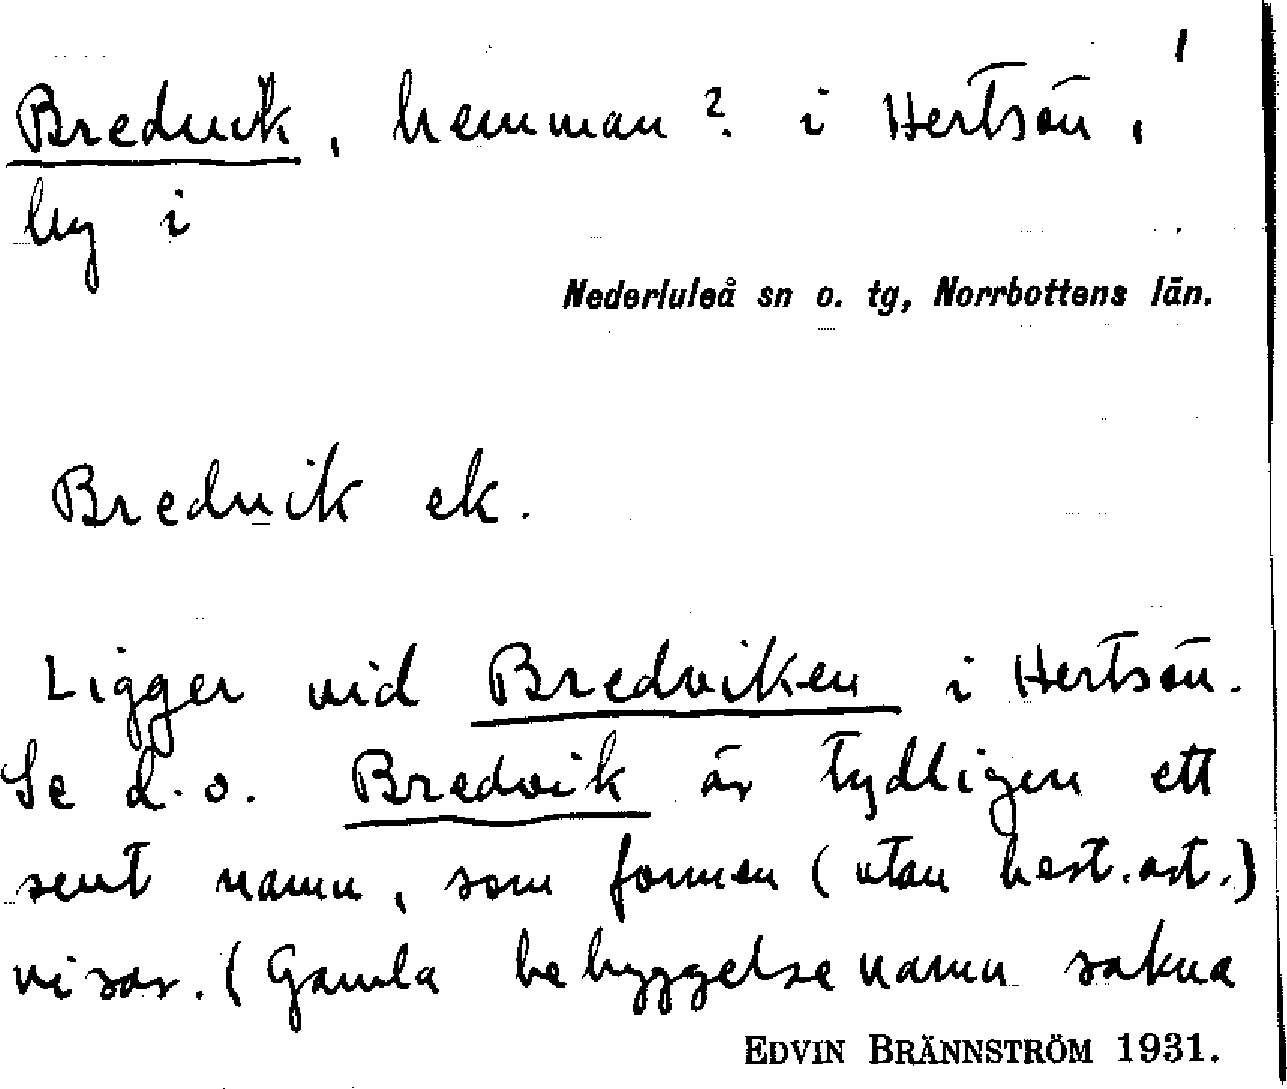 1
Bredvik, hemman? i Hertsön,
by i
Nederluleå sn o. tg, Norrbottens län.
Bredvik ek.
Ligger vid Bredviken i Hertsön.
Se d.o. Bredvik är tydligen ett
sent namn, som formen (utan best. art.)
visar. (Gamla bebyggelsenamn sakna
EDVIN BRÄNNSTRÖM 1931.